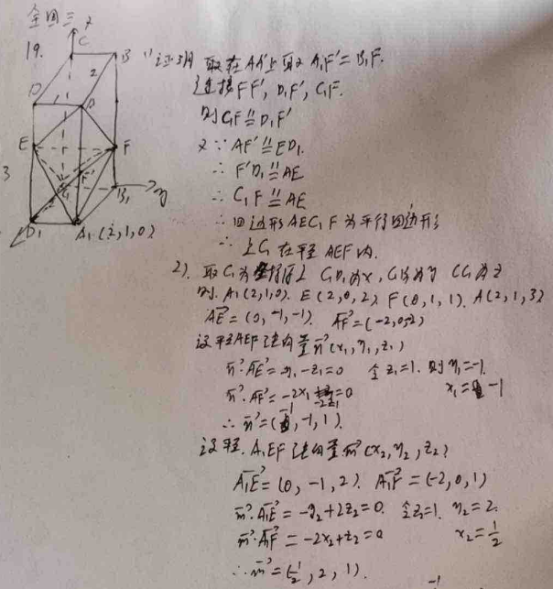 全国三
19.
z
C
B
D
A
2
E
F
F'
3
C1
B1
y
D1
A1(2,1,0)
1) 证明 取在AA'上取A1F'=B1F.
连接FF', D1F', C1F.
则C1F∥=D1F'
又∵AF'∥=ED1.
∴F'D1∥=AE
∴C1F∥=AE
∴四边形AEC1F为平行四边形
∴点C1在平面AEF内.
2). 取C1为坐标原点 C1D1为x, C1B1为y CC1为z
则. A1(2,1,0). E(2,0,2) F(0,1,1). A(2,1,3)
AE→=(0,-1,-1). AF→=(-2,0,-2)
设平AEF法向量n→(x1,y1,z1)
n→·AE→=-y1-z1=0 令z1=1. 则y1=-1.
n→·AF→=-2x1-2z1=0 x1=-1
∴n→=(-1,-1,1).
设平.A1EF法向量m→(x2,y2,z2)
A1E→=(0,-1,2). A1F→=(-2,0,1)
m→·A1E→=-y2+2z2=0. 令z2=1. y2=2.
m→·A1F→=-2x2+z2=0 x2=1/2
∴m→=(1/2,2,1).